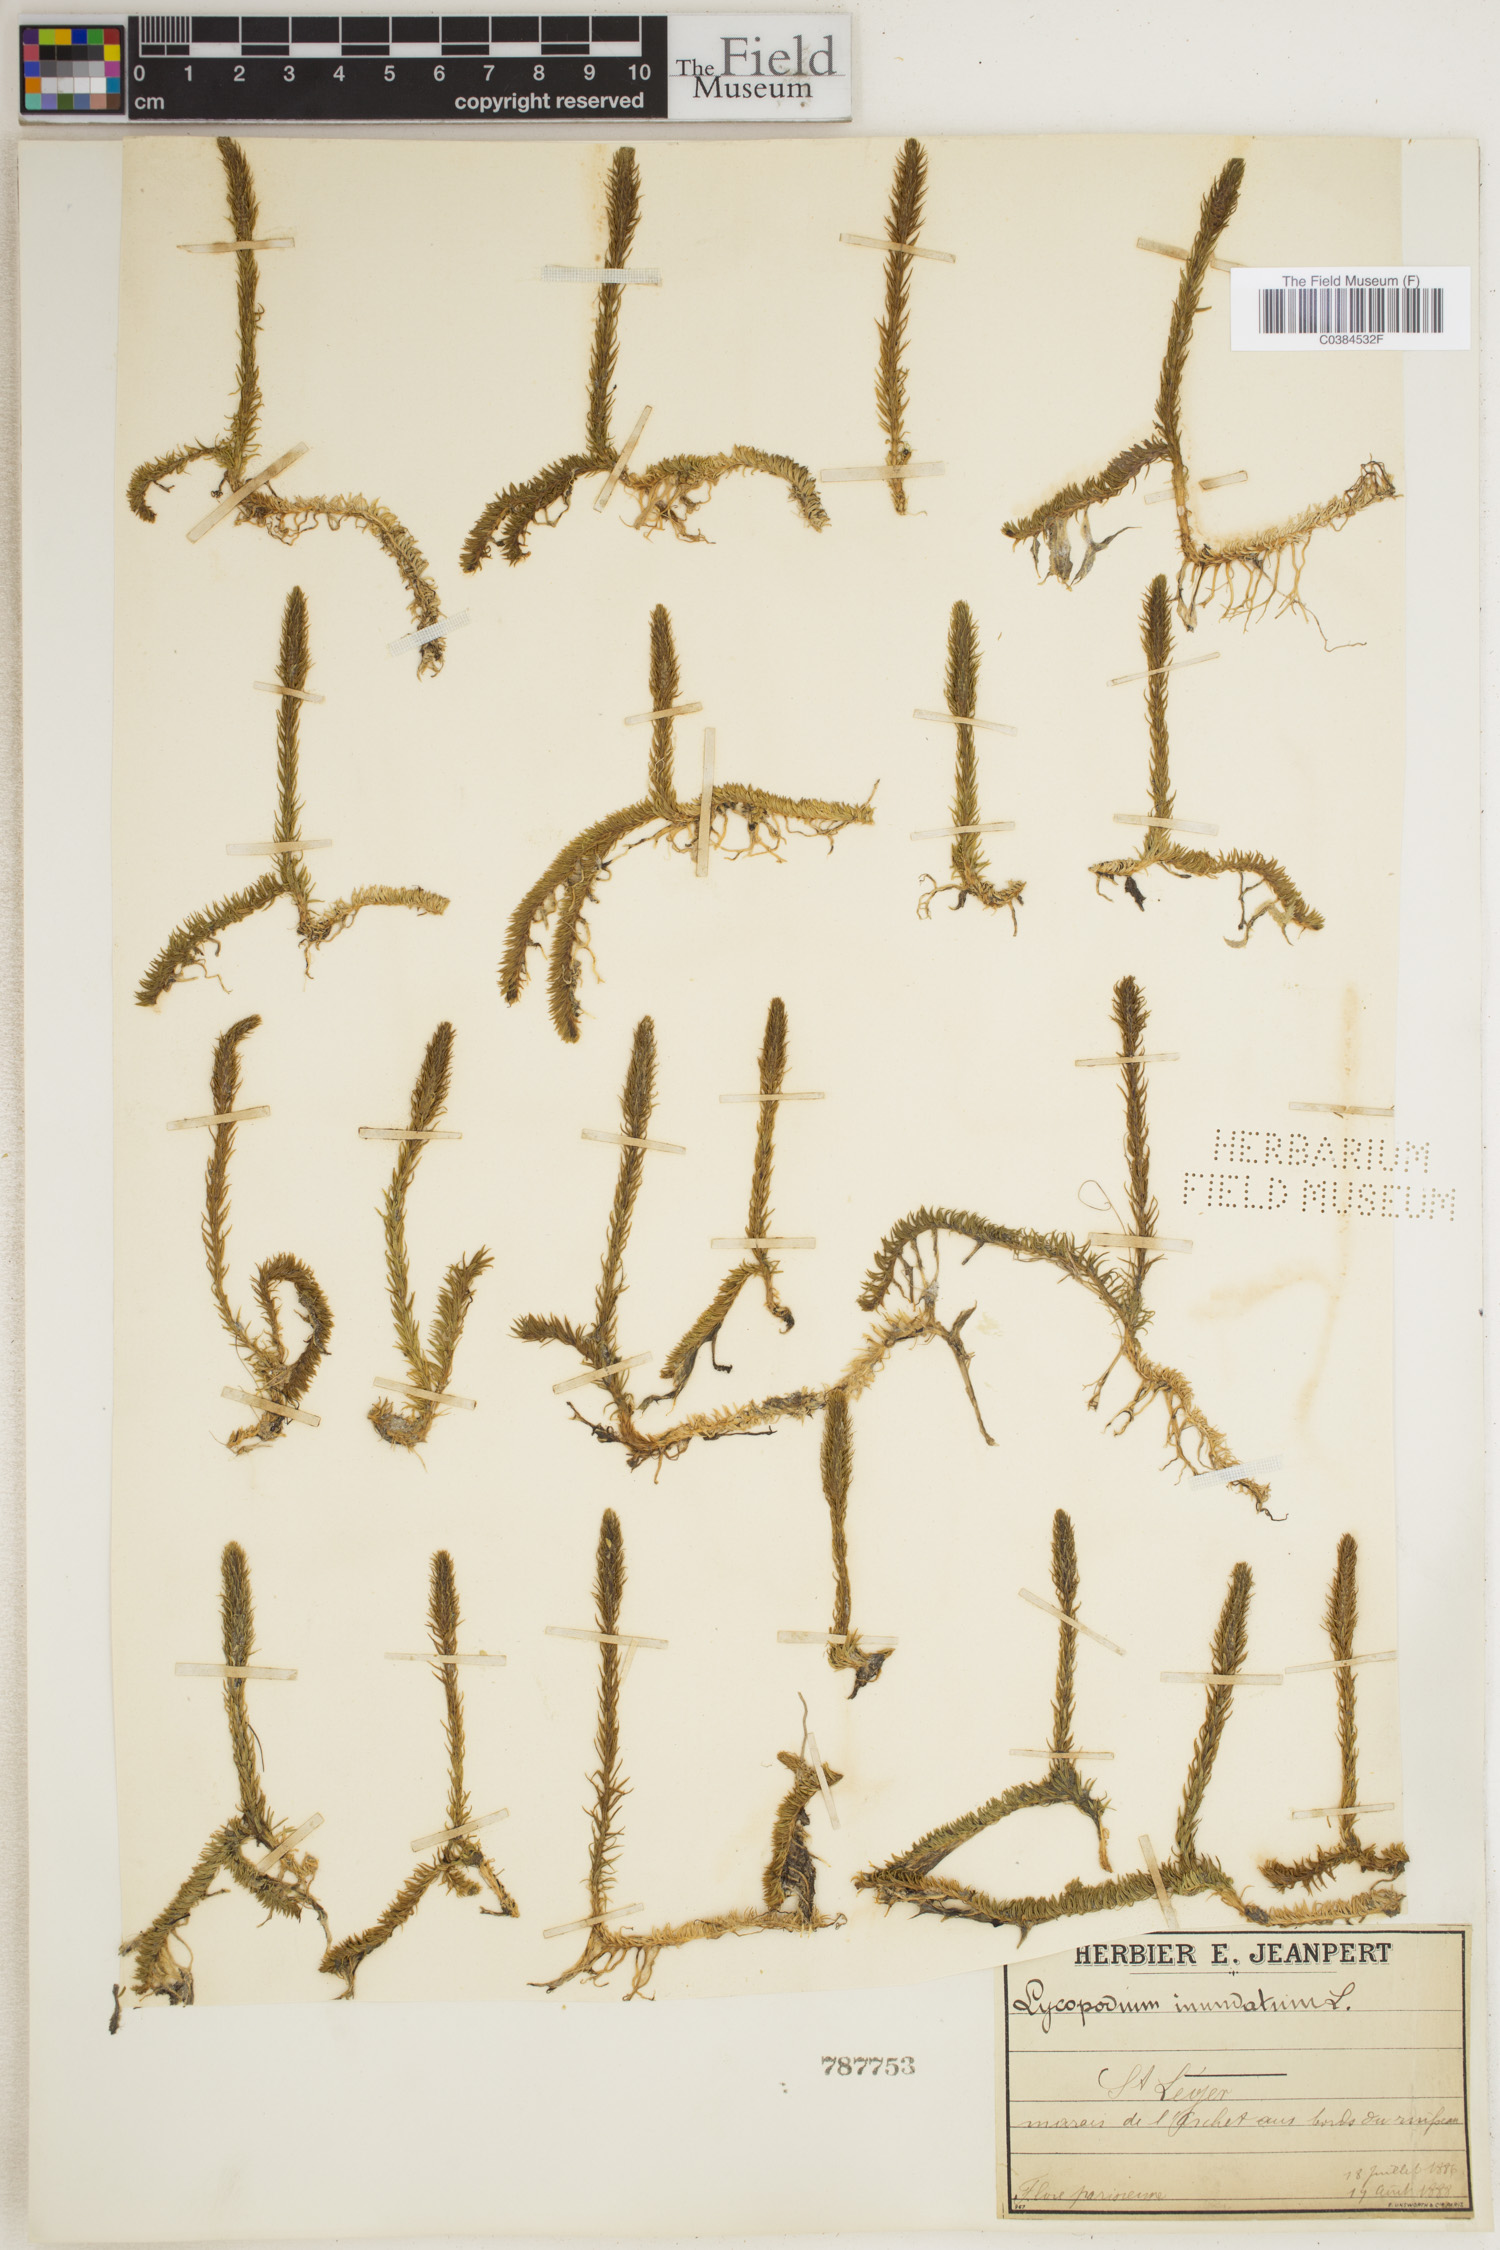 0 1 2 3 4 5 6 7 8 9 10
cm
copyright reserved
The Field Museum
The Field Museum (F)
C0384532F
HERBARIUM
FIELD MUSEUM
HERBIER E. JEANPERT
Lycopodium inundatum L.
St Léger
marais de aux bords du
787753
Flore parisienne
18 Juillet
19 Août 1888